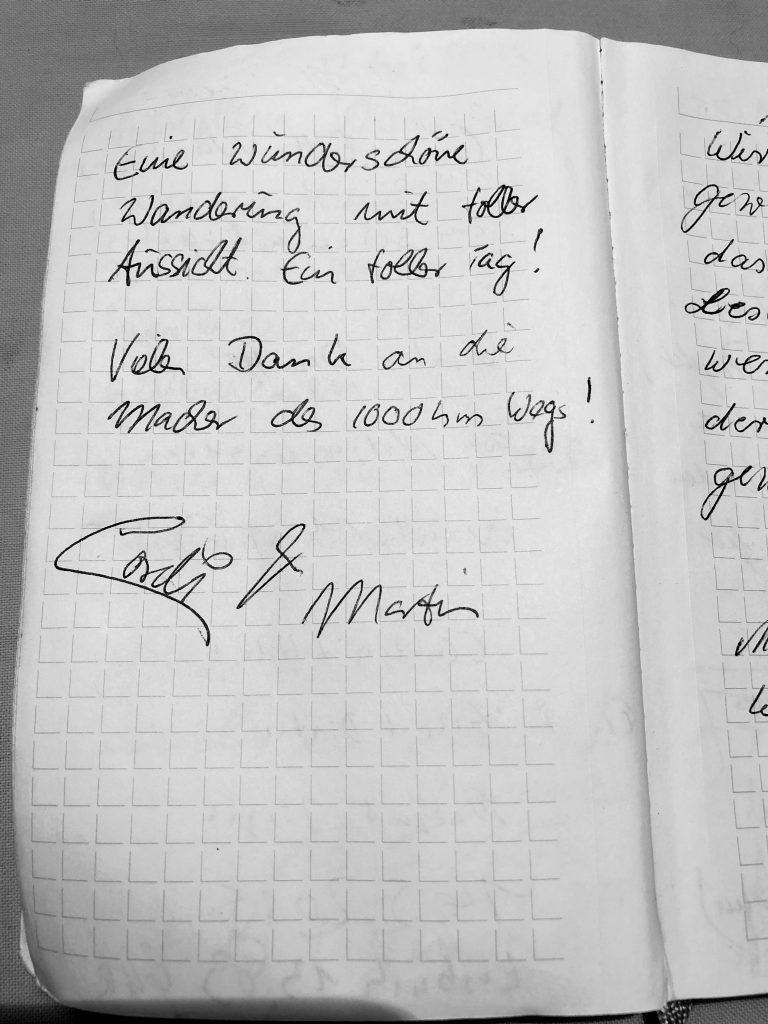 Eine wunderschöne
Wanderung mit toller
Aussicht. Ein toller Tag!
Vielen Dank an die
Macher des 1000hm Wegs!
Cordi &
Martin
Wir
das